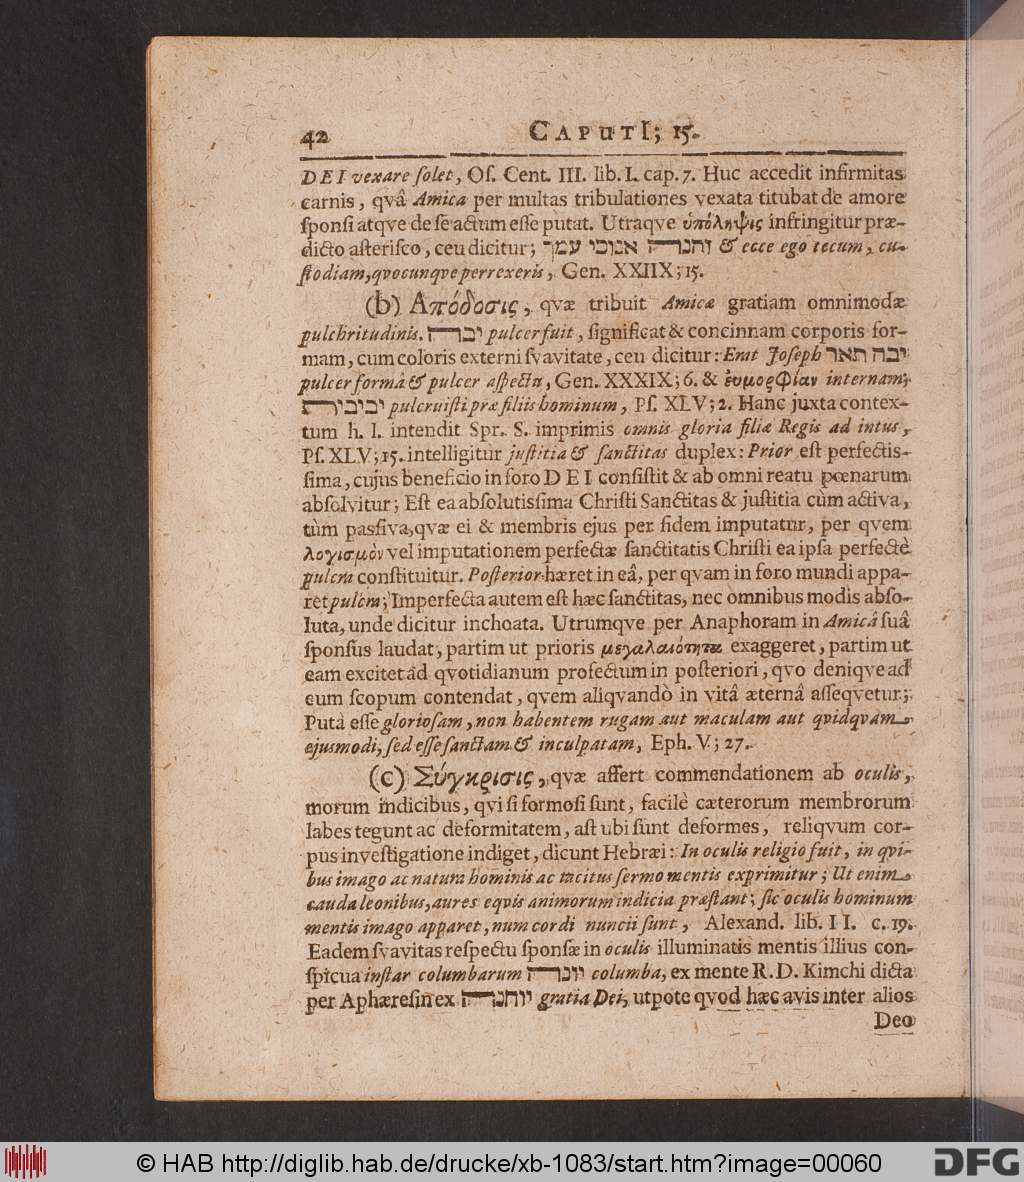 42 CAPUT I; 15.
DEI vexare ſolet, Oſ. Cent. III. lib. I. cap. 7. Huc accedit infirmitas
carnis, qvâ Amica per multas tribulationes vexata titubat de amore
ſponſi atqve de ſe actum eſſe putat. Utraqve ὑπόληψις infringitur præ-
dicto aſteriſco, ceu dicitur; והנרה אנוכי עמך & ecce ego tecum, cu-
ſtodiam, qvocunqve perrexeris, Gen. XXIIX; 15.
(b) Ἀπόδοσις, qvæ tribuit Amicæ gratiam omnimodæ
pulchritudinis. יברה pulcer fuit, ſignificat & concinnam corporis for-
mam, cum coloris externi ſvavitate, ceu dicitur: Erat Joſeph יבה תאר
pulcer formâ & pulcer aſpectu, Gen. XXXIX; 6. & ἐυμορφίαν internam;
יביבירת pulcruiſti præ filiis hominum, Pſ. XLV; 2. Hanc juxta contex-
tum h. l. intendit Spr. S. imprimis omnis gloria filiæ Regis ad intus,
Pſ. XLV; 15. intelligitur juſtitia & ſanctitas duplex: Prior eſt perfectis-
ſima, cujus beneficio in foro DEI conſiſtit & ab omni reatu pœnarum
abſolvitur; Eſt ea abſolutiſſima Chriſti Sanctitas & juſtitia cùm activa,
tùm paſſiva, qvæ ei & membris ejus per fidem imputatur, per qvem
λογισμὸν vel imputationem perfectæ ſanctitatis Chriſti ea ipſa perfectè
pulcra conſtituitur. Poſterior hæret in eâ, per qvam in foro mundi appa-
ret pulcra; Imperfecta autem eſt hæc ſanctitas, nec omnibus modis abſo-
luta, unde dicitur inchoata. Utrumqve per Anaphoram in Amicâ ſuâ
ſponſus laudat, partim ut prioris exaggeret, partim ut
eam excitet ad qvotidianum profectum in poſteriori, qvo deniqve ad
eum ſcopum contendat, qvem aliqvandò in vitâ æternâ aſſeqvetur;
Putà eſſe glorioſam, non habentem rugam aut maculam aut qvidqvam
ejusmodi, ſed eſſe ſanctam & inculpatam, Eph. V; 27.
(c) Σύγκρισις, qvæ affert commendationem ab oculis,
morum indicibus, qvi ſi formoſi ſunt, facilè cæterorum membrorum
labes tegunt ac deformitatem, aſt ubi ſunt deformes, reliqvum cor-
pus inveſtigatione indiget, dicunt Hebræi: In oculis religio fuit, in qvi-
bus imago ac natura hominis ac tacitus ſermo mentis exprimitur; Ut enim
cauda leonibus, aures eqvis animorum indicia præſtant; ſic oculis hominum
mentis imago apparet, num cordi nuncii ſunt, Alexand. lib. II. c. 19.
Eadem ſvavitas reſpectu ſponſæ in oculis illuminatis mentis illius con-
ſpicua inſtar columbarum יונרה columba, ex mente R. D. Kimchi dicta
per Aphæreſin ex יוחנרה gratia Dei, utpote qvod hæc avis inter alios
Deo
© HAB http://diglib.hab.de/drucke/xb-1083/start.htm?image=00060
DFG